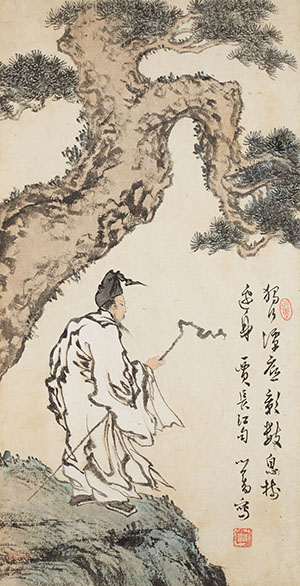 獨行潭底影數息樹
邊身賈長江句心畬寫